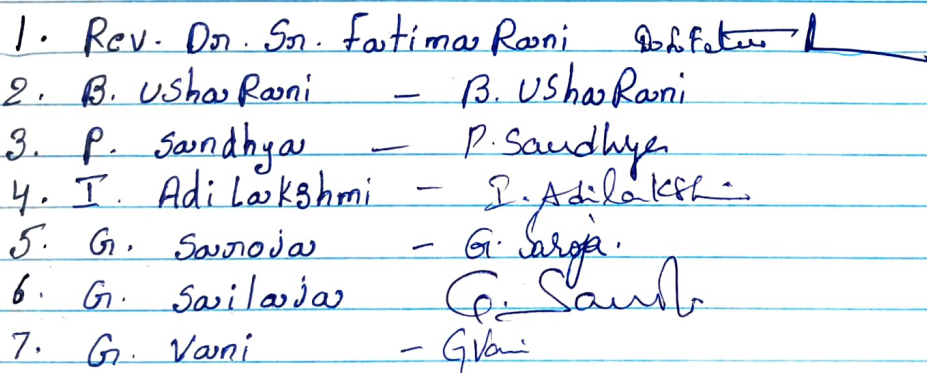 1. Rev. Dr. Sr. Fatima Rani
2. B. Usha Rani - B. Usha Rani
3. P. Sandhya - P. Sandhya
4. I. Adi Lakshmi - I. Adilakshmi
5. G. Saroja - G. Saroja.
6. G. Sailaja G.
7. G. Vani - G Vani